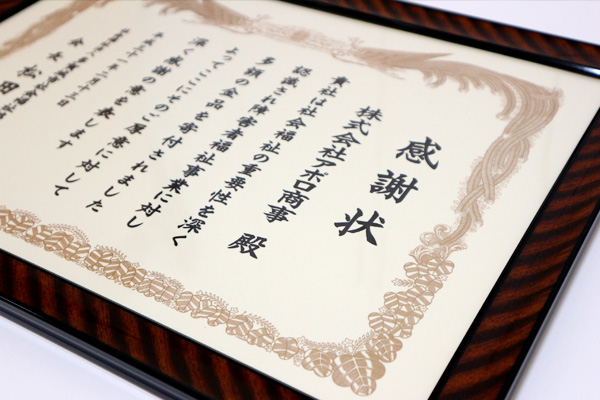 感謝状
株式会社アポロ商事 殿
貴社は社会福祉の重要性を深く
認識され障害者福祉事業に対し
多額の金品を寄付されました
よってここにそのご厚意に対して
深く感謝の意を表します
平成二十一年二月十三日